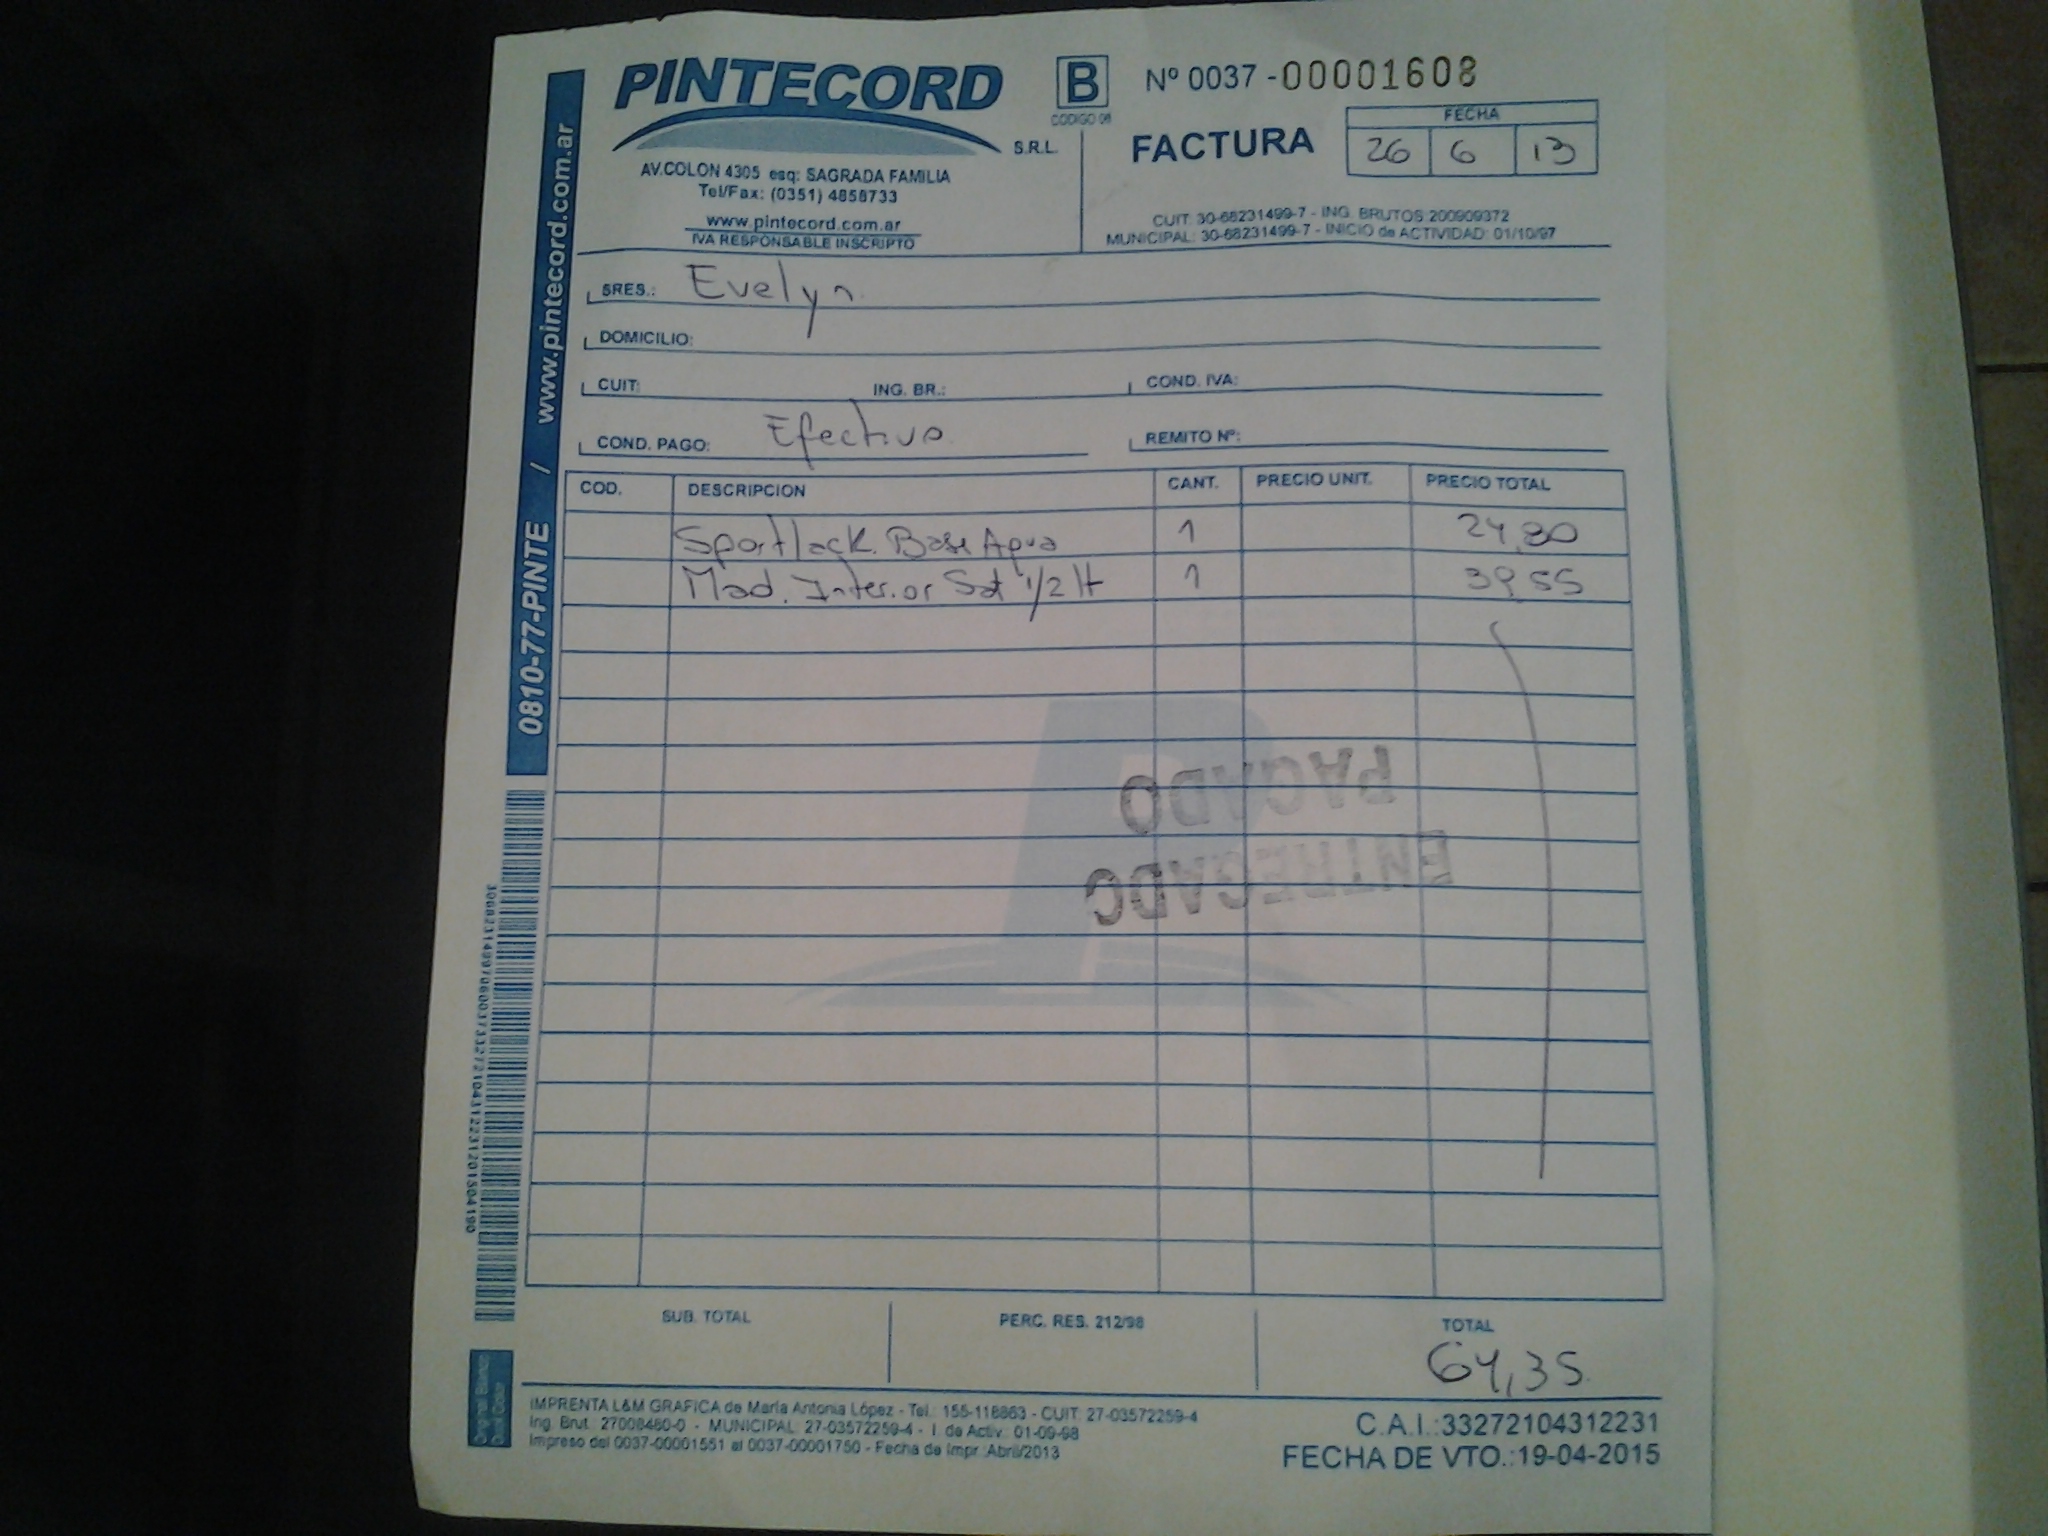 PINTECORD
S.R.L.
AV.COLON 4305 esq: SAGRADA FAMILIA
Tel/Fax: (0351) 4858733
www.pintecord.com.ar
IVA RESPONSABLE INSCRIPTO
B
CODIGO 06
Nº 0037 -00001608
FACTURA
FECHA
26 6 13
CUIT: 30-68231499-7 - ING. BRUTOS:200909372
MUNICIPAL: 30-68231499-7 - INICIO de ACTIVIDAD: 01/10/97
0810-77-PINTE / www.pintecord.com.ar
SRES.: Evelyn
DOMICILIO:
CUIT: ING. BR.: COND. IVA:
COND. PAGO: Efectivo REMITO Nº:
COD. DESCRIPCION CANT. PRECIO UNIT. PRECIO TOTAL
Sportlack Base Agua 1 24,80
Mad. Interior Sat 1/2 lt 1 39,55
PAGADO
ENTREGADO
SUB. TOTAL PERC. RES. 212/98 TOTAL
64,35
Original Blanco
IMPRENTA L&M GRAFICA de María Antonia López - Tel.: 155-118863 - CUIT: 27-03572259-4
Ing. Brut.: 27008460-0 - MUNICIPAL: 27-03572259-4 - I. de Activ.: 01-09-98
Impreso del 0037-00001551 al 0037-00001750 - Fecha de Impr.:Abril/2013
C.A.I.:33272104312231
FECHA DE VTO.:19-04-2015